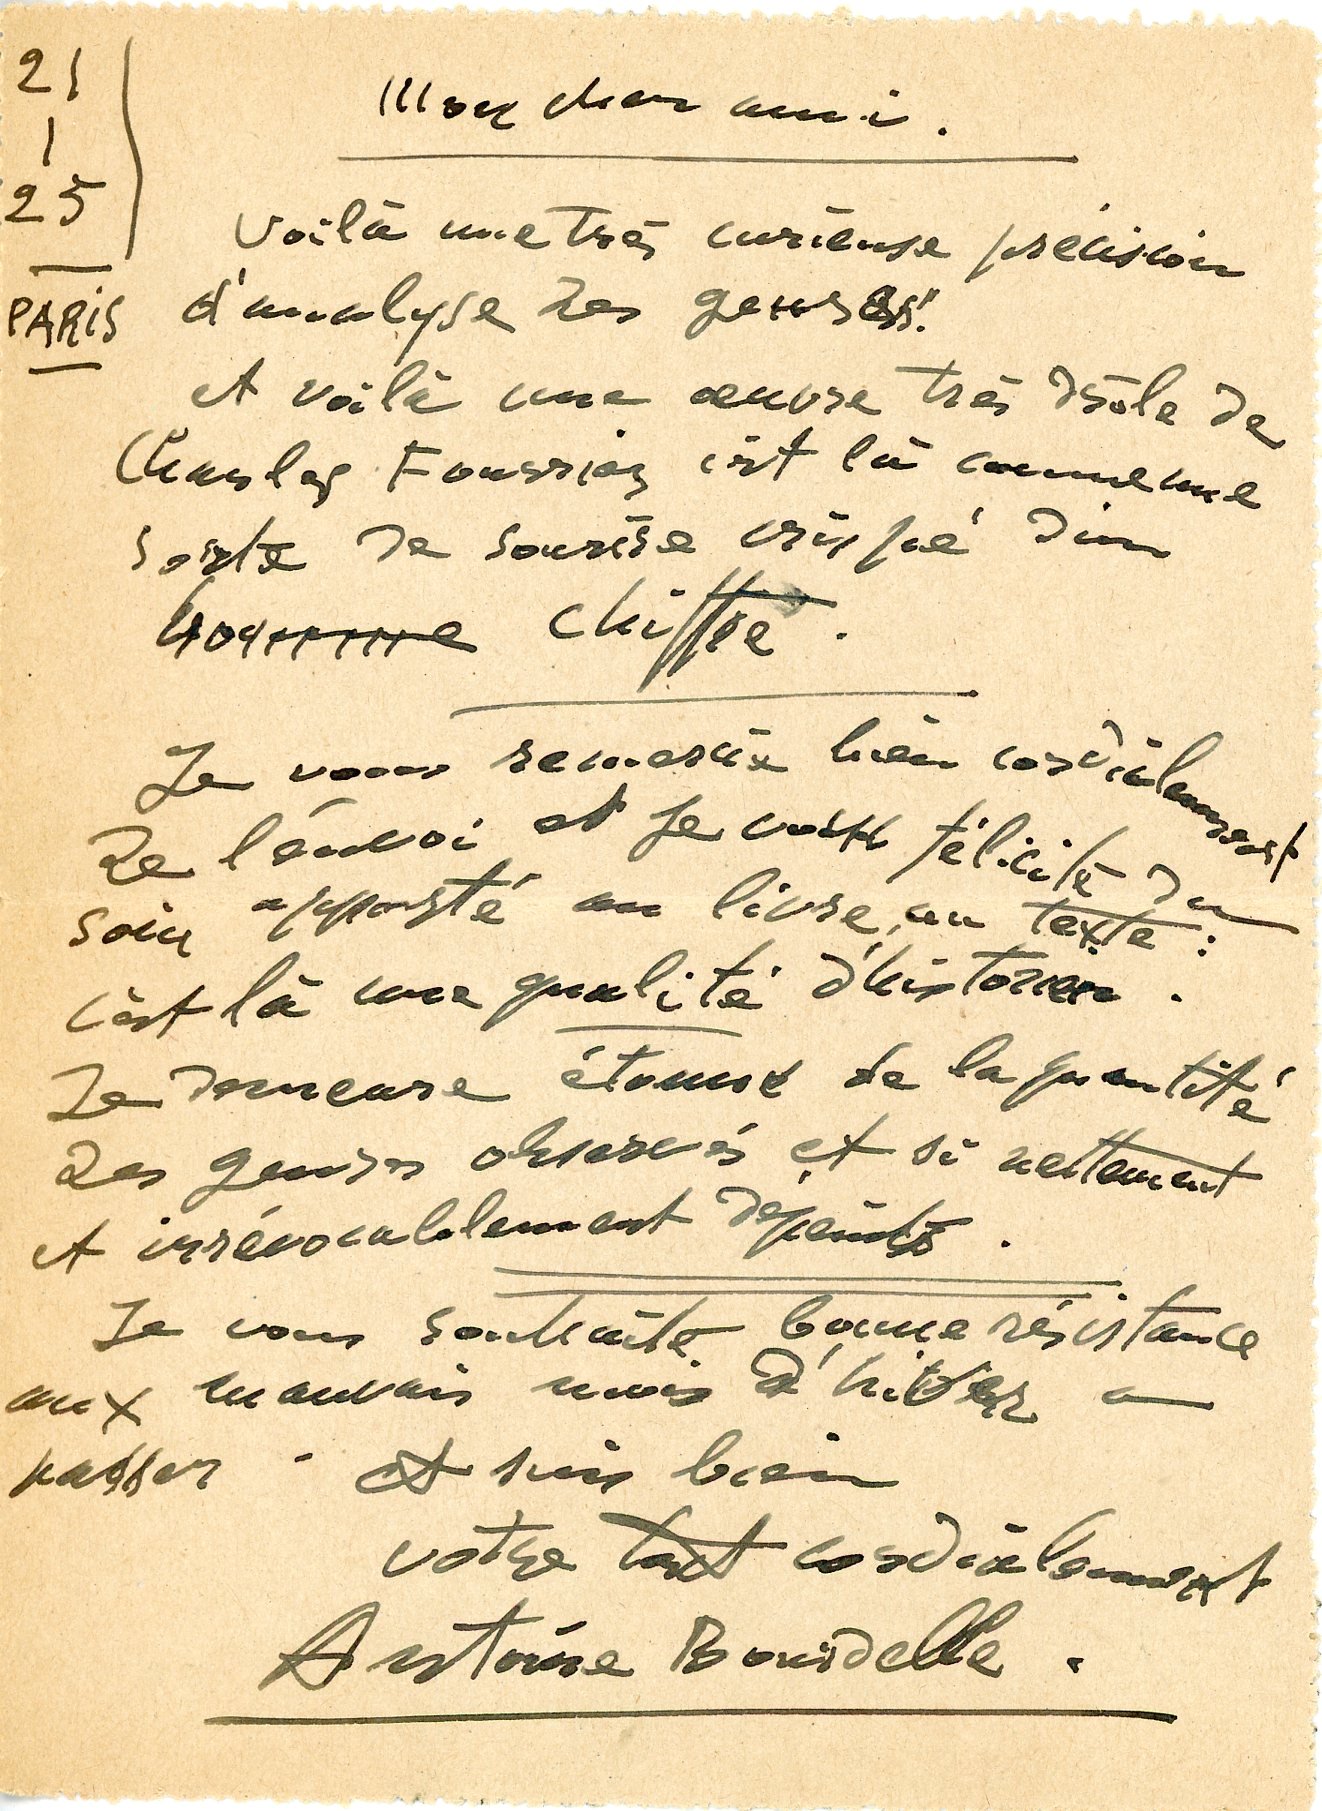 21
1
25
PARIS
Mon cher ami.
Voilà une très curieuse précision
d'analyse des genres!
et voilà une œuvre très drôle de
Charles Fourrier c'est là comme une
sorte de sourire crispé d'un
homme chiffre.
Je vous remercie bien cordialement
de l'envoi et je vous félicite du
soin apporté au livre, au texte :
c'est là une qualité d'historien.
Je demeure étonné de la quantité
des genres observés et si nettement
et irrévocablement dépeints.
Je vous souhaite bonne résistance
aux mauvais mois d'hiver à
passer. et suis bien
votre tout cordialement
Antoine Bourdelle.